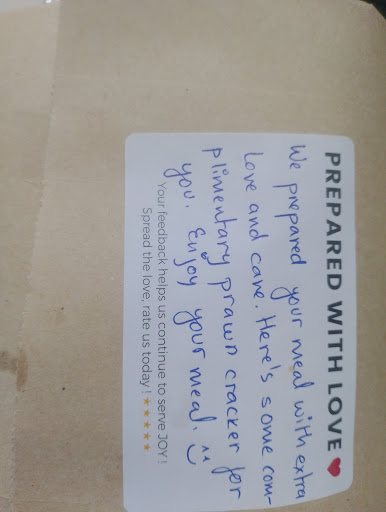 PREPARED WITH LOVE ❤
We prepared your meal with extra
love and care. Here's some com-
plimentary prawn cracker for
you. Enjoy your meal! ^^
Your feedback helps us continue to serve JOY!
Spread the love, rate us today! ★★★★★